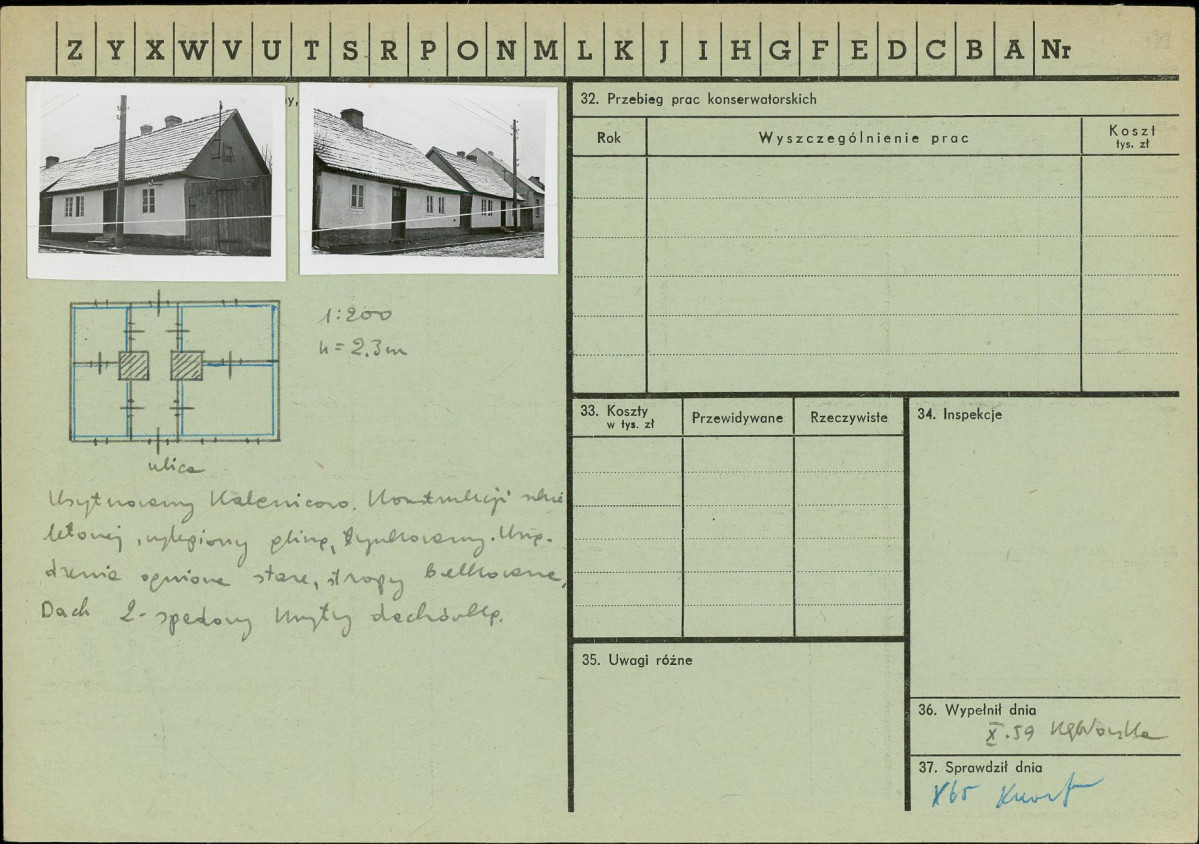 Z Y X W V U T S R P O N M L K J I H G F E D C B A Nr
ny,
32. Przebieg prac konserwatorskich
Rok
Wyszczególnienie prac
Koszt
tys. zł
1:200
h = 2.3m
ulica
Usytuowany kalenicowo. Konstrukcji szkie
letowej, wylepiony gliną, tynkowany. Urzą-
dzenia ogniowe stare, stropy belkowane,
Dach 2-spadowy kryty dachówką.
33. Koszty
w tys. zł
Przewidywane
Rzeczywiste
34. Inspekcje
35. Uwagi różne
36. Wypełnił dnia
X.59
37. Sprawdził dnia
X65